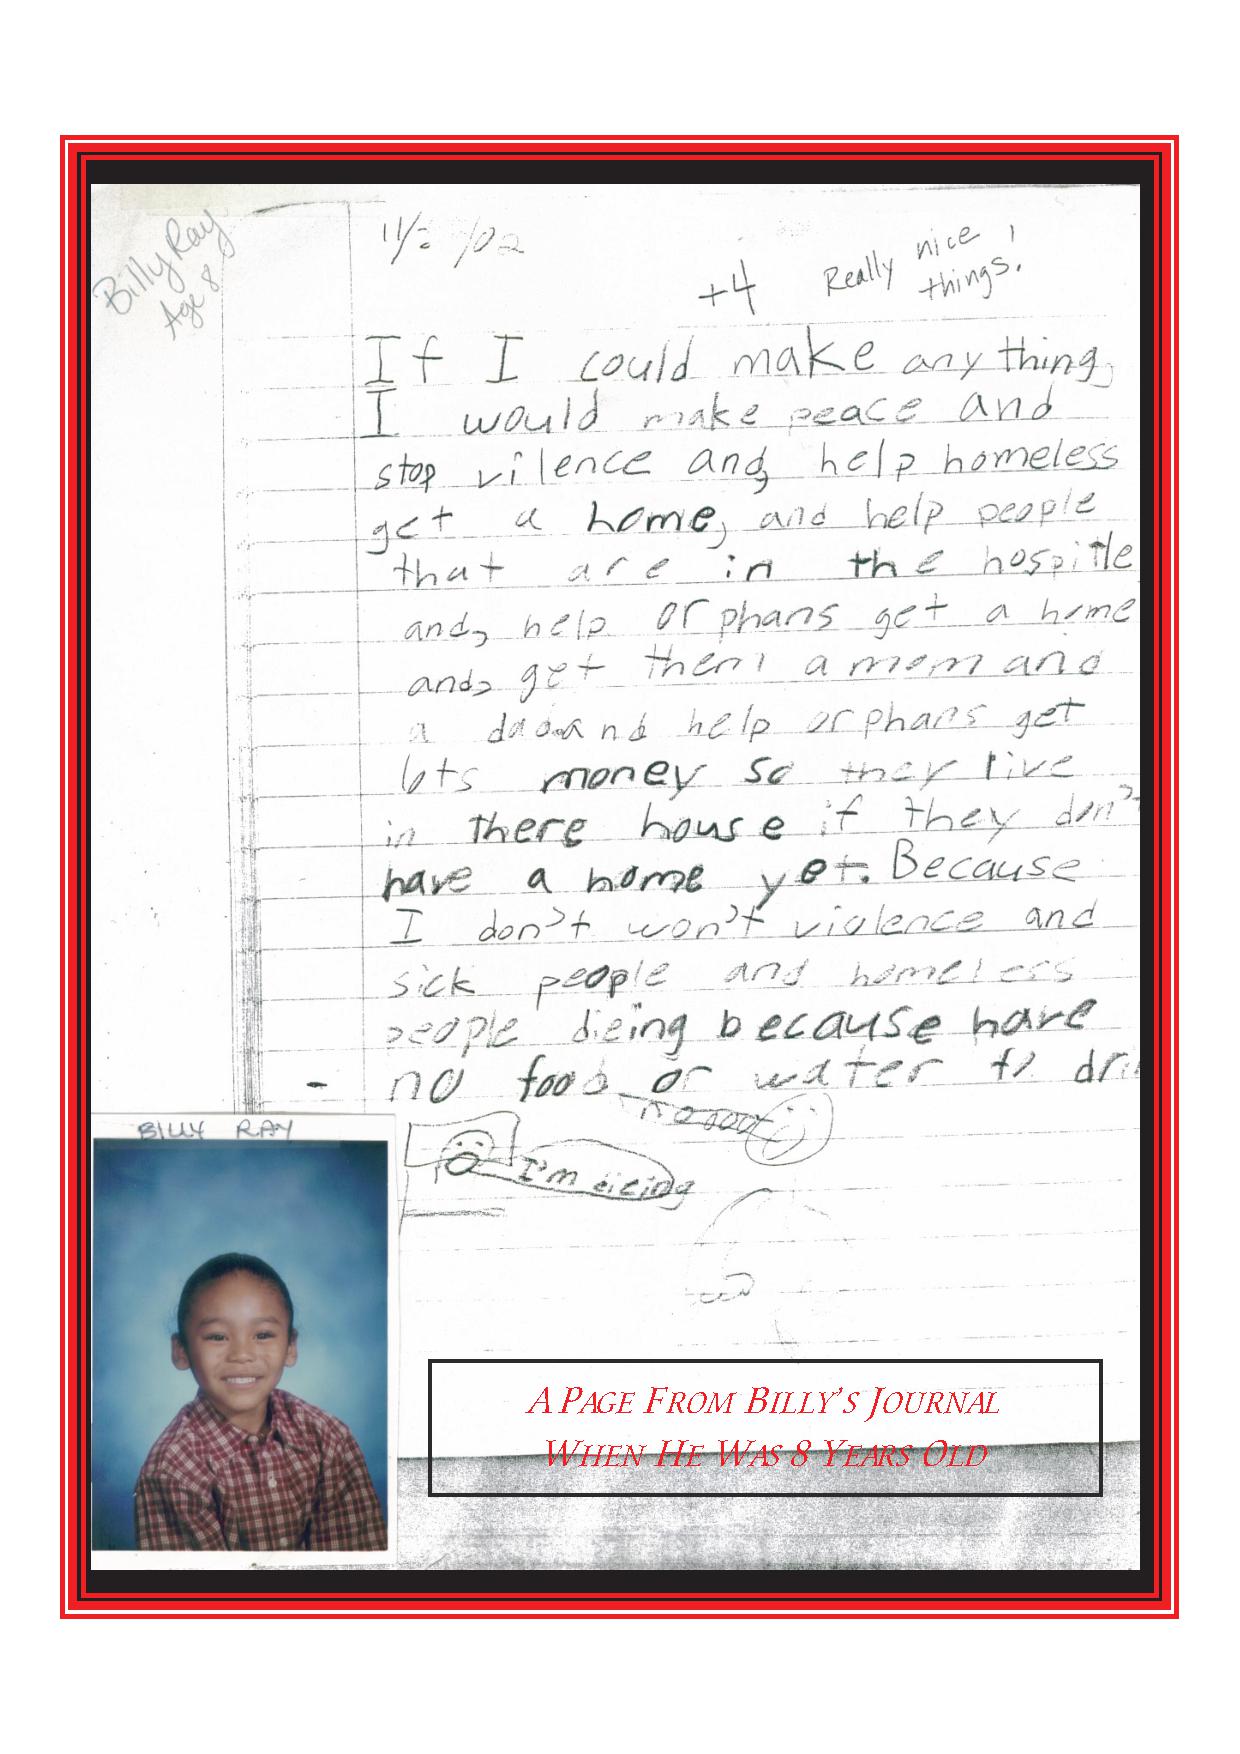 Billy Ray
Age 8
11/ /02
+4 Really nice things!
If I could make any thing,
I would make peace and
stop vilence and, help homeless
get a home, and help people
that are in the hospitle
and, help orphans get a home
and, get them a mom and
a dad and help orphans get
lots money so they live
in there house if they don't
have a home yet. Because
I don't won't violence and
sick people and homeless
people dieing because have
no food or water to dri
no food
I'm dieing
BILLY RAY
A PAGE FROM BILLY'S JOURNAL
WHEN HE WAS 8 YEARS OLD